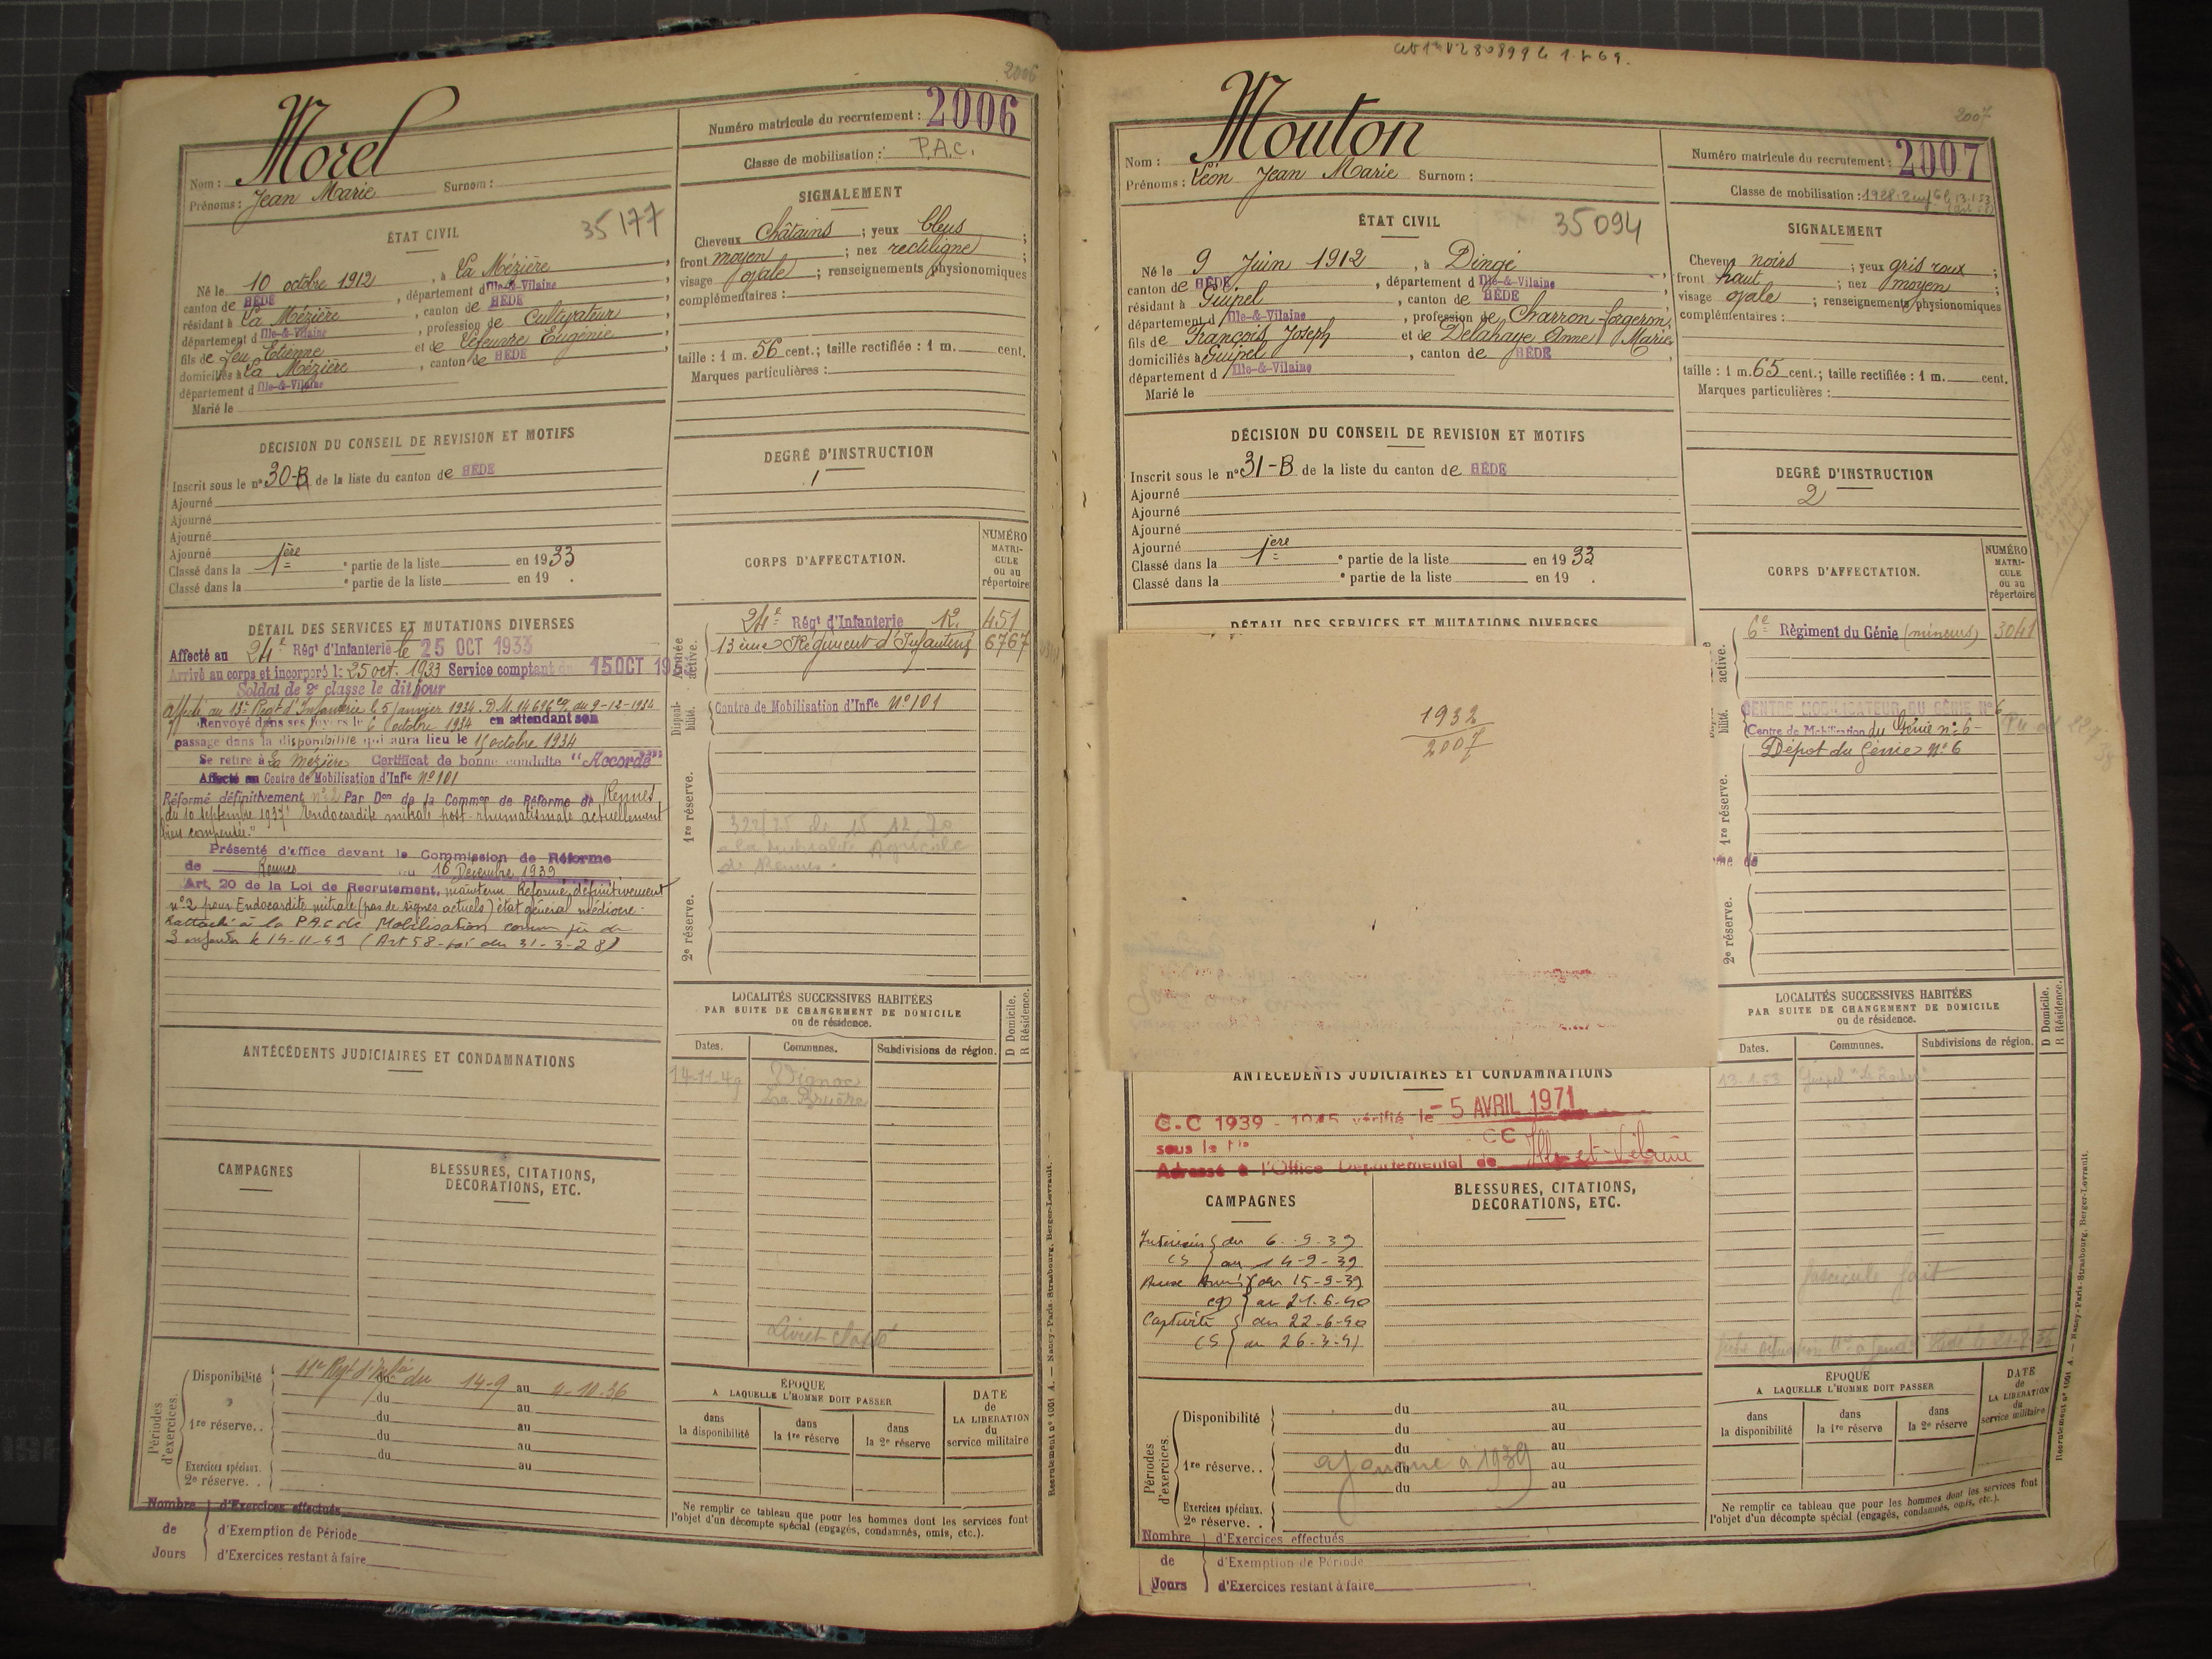 2006
Morel
Numéro matricule du recrutement : 2006
Classe de mobilisation : P.A.C.
Nom :
Prénoms : Jean Marie Surnom :
ÉTAT CIVIL
35177
Né le 10 octobre 1912, à La Mézière,
canton de HÉDÉ, département d Ille-&-Vilaine
résidant à La Mézière, canton de HÉDÉ,
département d Ille-&-Vilaine, profession de Cultivateur
fils de feu Etienne et de Lefeuvre Eugénie
domiciliés à La Mézière, canton de HÉDÉ
département d Ille-&-Vilaine
Marié le
SIGNALEMENT
Cheveux châtains ; yeux bleus ;
front moyen ; nez rectiligne ;
visage ovale ; renseignements physionomiques
complémentaires :
taille : 1 m. 56 cent. ; taille rectifiée : 1 m. cent.
Marques particulières :
DÉCISION DU CONSEIL DE REVISION ET MOTIFS
Inscrit sous le n° 30-B de la liste du canton de HÉDÉ
Ajourné
Ajourné
Ajourné
Ajourné
Classé dans la 1ère e partie de la liste en 1933
Classé dans la e partie de la liste en 19 .
DEGRÉ D'INSTRUCTION
1
DÉTAIL DES SERVICES ET MUTATIONS DIVERSES
Affecté au 24e Régt d'Infanterie le 25 OCT 1933
Arrivé au corps et incorporé le 25 oct. 1933 Service comptant du 15 OCT 19
Soldat de 2e classe le dit jour
Affecté au 13e Regt d'Infanterie le 5 janvier 1934. D.M. 14696
Renvoyé dans ses foyers le 6 octobre 1934 en attendant son
passage dans la disponibilité qui aura lieu le 15 octobre 1934
Se retire à La Mézière Certificat de bonne conduite "Accordé"
Affecté au Centre de Mobilisation d'Infie N° 101
Réformé définitivement n° 2 Par Don de la Common de Réforme de Rennes
du 10 septembre 1937 "Endocardite mitrale post-rhumatismale actuellement
bien compensée."
Présenté d'office devant la Commission de Réforme
de Rennes du 16 Décembre 1939
Art. 20 de la Loi de Recrutement, maintenu Réformé définitivement
n° 2 pour Endocardite mitrale (pas de signes actuels) état général médiocre.
Rattaché à la P.A.C. de Mobilisation comme père de
3 enfants le 14-11-49 (Art 58 - Loi du 31-3-28)
CORPS D'AFFECTATION.
NUMÉRO MATRICULE ou au répertoire
Armée active.
24e Régt d'Infanterie 451
13ème Régiment d'Infanterie 6767
Disponibilité.
Centre de Mobilisation d'Infie N° 101
1re réserve.
de Rennes.
2e réserve.
ANTÉCÉDENTS JUDICIAIRES ET CONDAMNATIONS
LOCALITÉS SUCCESSIVES HABITÉES
PAR SUITE DE CHANGEMENT DE DOMICILE
ou de résidence.
D Domicile.
R Résidence.
Dates. Communes. Subdivisions de région.
14-11-49 Vignoc
La Bruère
CAMPAGNES
BLESSURES, CITATIONS,
DÉCORATIONS, ETC.
Livret classé
Périodes d'exercices.
Disponibilité 11e Regt d'Infie du 14-9 au 4-10-36
du au
1re réserve.. du au
du au
du au
Exercices spéciaux.
2e réserve. .
Nombre de Jours
d'Exercices effectués
d'Exemption de Période
d'Exercices restant à faire
ÉPOQUE
A LAQUELLE L'HOMME DOIT PASSER
dans la disponibilité
dans la 1re réserve
dans la 2e réserve
DATE de LA LIBÉRATION du service militaire
Ne remplir ce tableau que pour les hommes dont les services font
l'objet d'un décompte spécial (engagés, condamnés, omis, etc.).
Recrutement n° 1051 A. — Nancy-Paris-Strasbourg, Berger-Levrault.
2007
Mouton
Numéro matricule du recrutement : 2007
Classe de mobilisation : 1928
Nom :
Prénoms : Léon Jean Marie Surnom :
ÉTAT CIVIL
35094
Né le 9 Juin 1912, à Dingé,
canton de HÉDÉ, département d Ille-&-Vilaine
résidant à Guipel, canton de HÉDÉ
département d Ille-&-Vilaine, profession de Charron-forgeron,
fils de François Joseph et de Delahaye Anne Marie
domiciliés à Guipel, canton de HÉDÉ
département d Ille-&-Vilaine
Marié le
SIGNALEMENT
Cheveux noirs ; yeux gris roux ;
front haut ; nez moyen ;
visage ovale ; renseignements physionomiques
complémentaires :
taille : 1 m. 65 cent. ; taille rectifiée : 1 m. cent.
Marques particulières :
DÉCISION DU CONSEIL DE REVISION ET MOTIFS
Inscrit sous le n° 31-B de la liste du canton de HÉDÉ
Ajourné
Ajourné
Ajourné
Ajourné
Classé dans la 1ere e partie de la liste en 1933
Classé dans la e partie de la liste en 19 .
DEGRÉ D'INSTRUCTION
2
DÉTAIL DES SERVICES ET MUTATIONS DIVERSES
1932
2007
CORPS D'AFFECTATION.
NUMÉRO MATRICULE ou au répertoire
active.
6e Régiment du Génie (mineurs) 3041
bilité.
CENTRE MOBILISATEUR DU GÉNIE N° 6
Centre de Mobilisation du Génie n° 6
Dépot du Génie N° 6
1re réserve.
2e réserve.
ANTÉCÉDENTS JUDICIAIRES ET CONDAMNATIONS
C.C 1939 - 1945 vérifié le - 5 AVRIL 1971
sous le N° CC
Adressé à l'Office Départemental de Ille-et-Vilaine
LOCALITÉS SUCCESSIVES HABITÉES
PAR SUITE DE CHANGEMENT DE DOMICILE
ou de résidence.
D Domicile.
R Résidence.
Dates. Communes. Subdivisions de région.
13.1.53 Guipel
CAMPAGNES
BLESSURES, CITATIONS,
DÉCORATIONS, ETC.
Intérieur du 6-9-39
CS au 14-9-39
Aux Armées du 15-9-39
au 21-6-40
Captivité du 22-6-40
CS au 26-3-41
fascicule fait
Périodes d'exercices.
Disponibilité du au
du au
du au
1re réserve.. ajourné à 1939 du au
du au
Exercices spéciaux.
2e réserve. .
Nombre de Jours
d'Exercices effectués
d'Exemption de Période
d'Exercices restant à faire
ÉPOQUE
A LAQUELLE L'HOMME DOIT PASSER
dans la disponibilité
dans la 1re réserve
dans la 2e réserve
DATE de LA LIBÉRATION du service militaire
Ne remplir ce tableau que pour les hommes dont les services font
l'objet d'un décompte spécial (engagés, condamnés, omis, etc.).
Recrutement n° 1051 A. — Nancy-Paris-Strasbourg, Berger-Levrault.